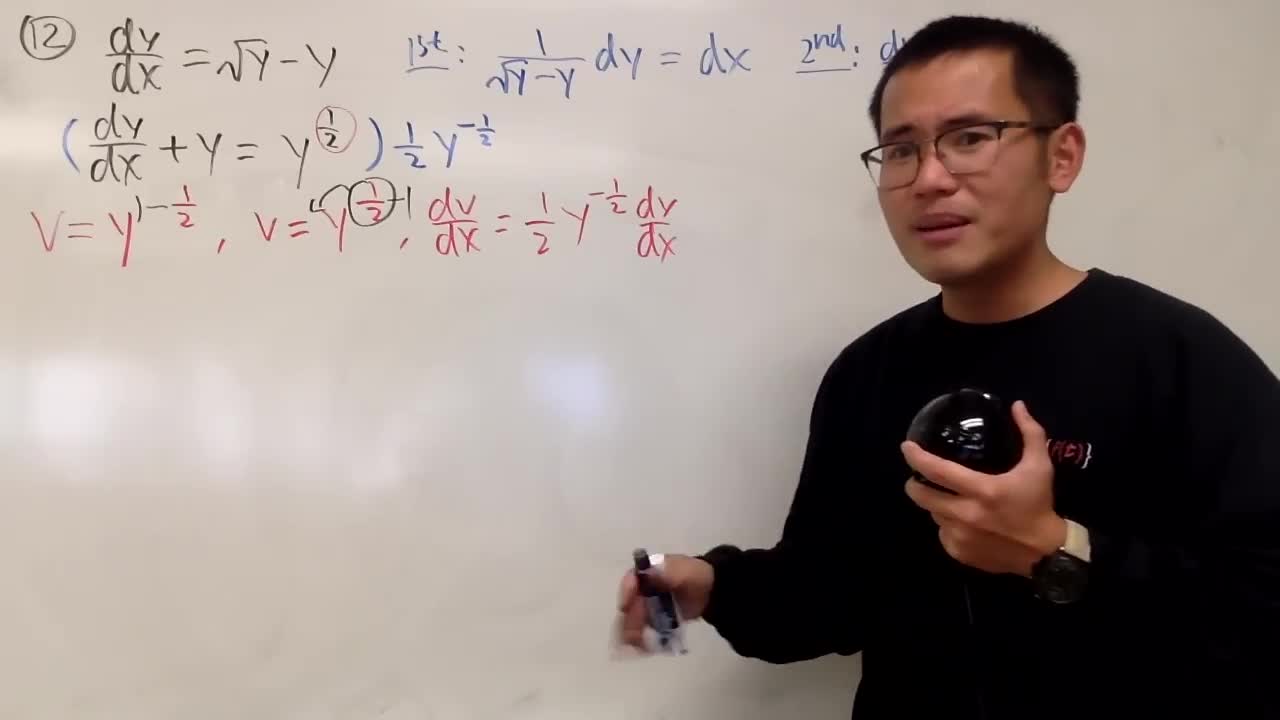 ⑫ dy/dx = √y - y   1st: 1/(√y - y) dy = dx   2nd:
(dy/dx + y = y^(1/2)) 1/2 y^(-1/2)
v = y^(1-1/2), v = y^(1/2)-1, dv/dx = 1/2 y^(-1/2) dy/dx